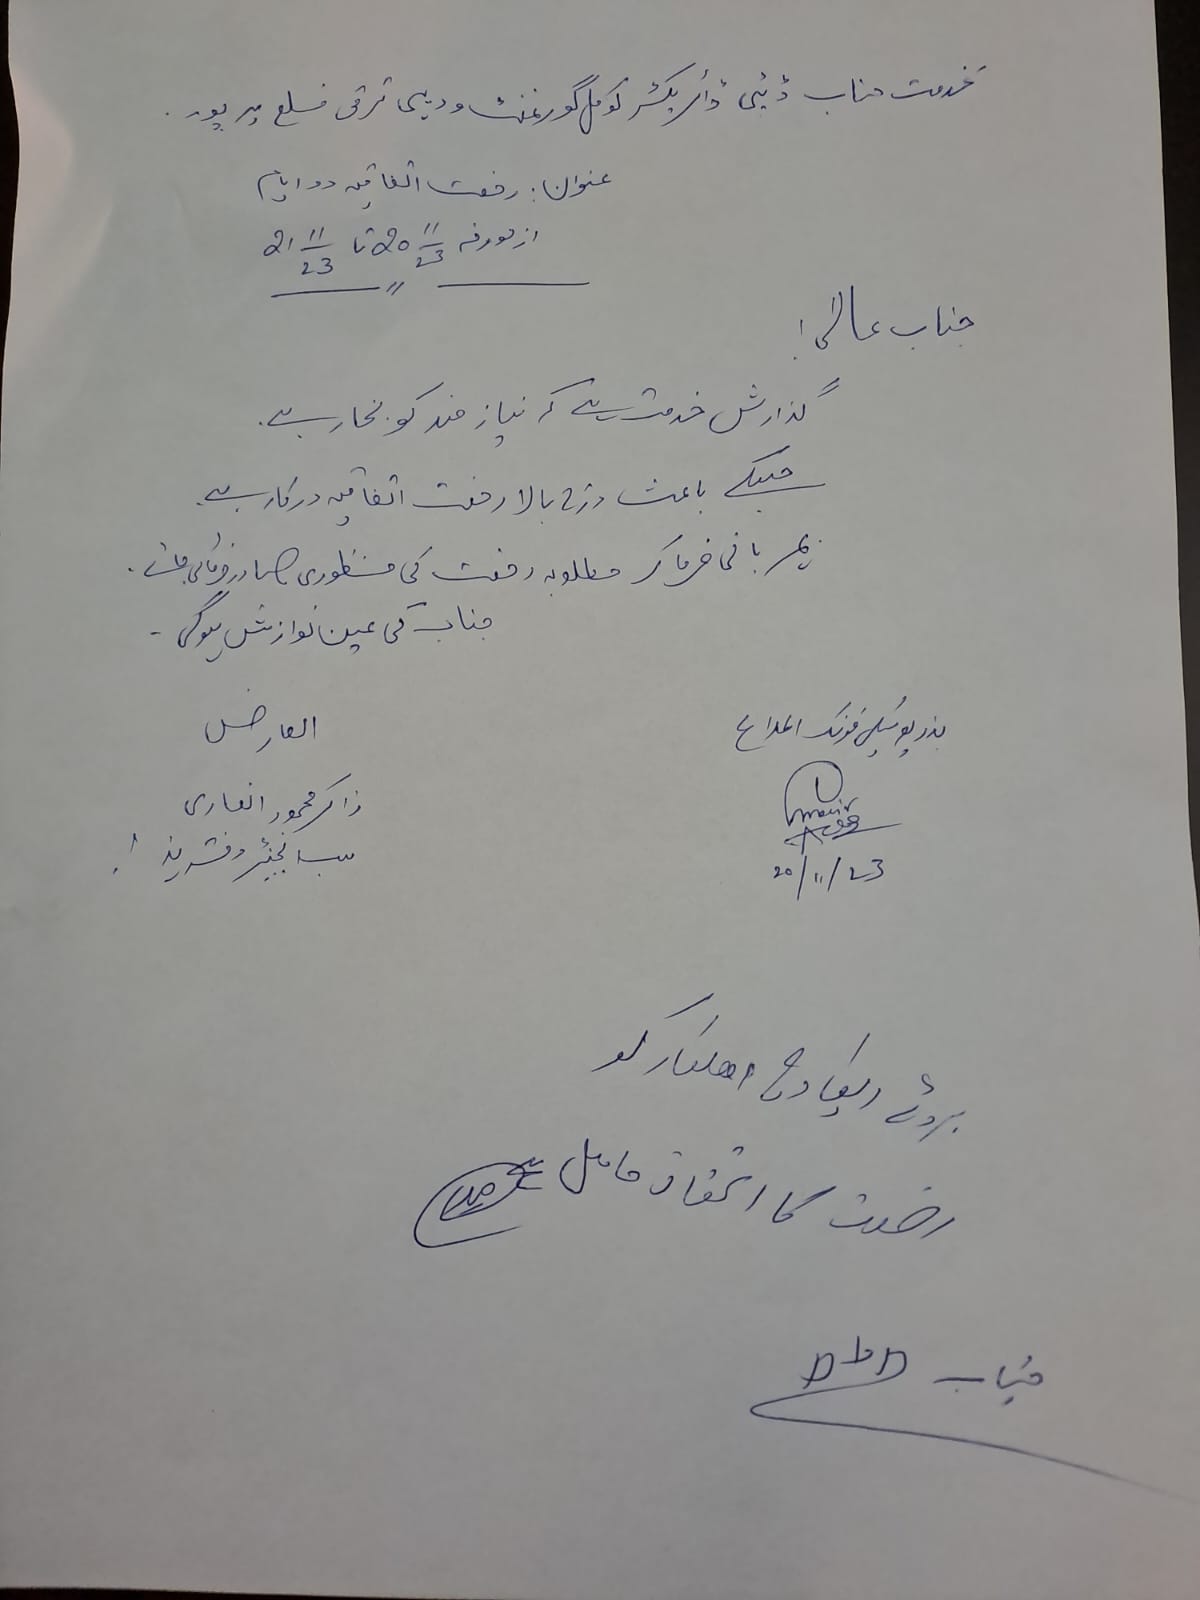 بخدمت جناب ڈپٹی ڈائریکٹر لوکل گورنمنٹ و دیہی ترقی ضلع میرپور۔
عنوان: رخصت اتفاقیہ دو ایام
از مورخہ 20 11/23 تا 21 11/23
جناب عالی!
گذارش خدمت ہے کہ نیاز مند کو بخار ہے۔
جسکے باعث درج بالا رخصت اتفاقیہ درکار ہے۔
مہربانی فرما کر مطلوبہ رخصت کی منظوری صادر فرمائی جائے۔
جناب کی عین نوازش ہوگی۔
العارض
ذاکر محمود انصاری
سب انجینئر دفتر ہذا!
بذریعہ ٹیلی فونک اطلاع
20/11/23
بروئے ریکارڈ اھلکار کو
رخصت کا استحقاق حاصل ہے
جناب